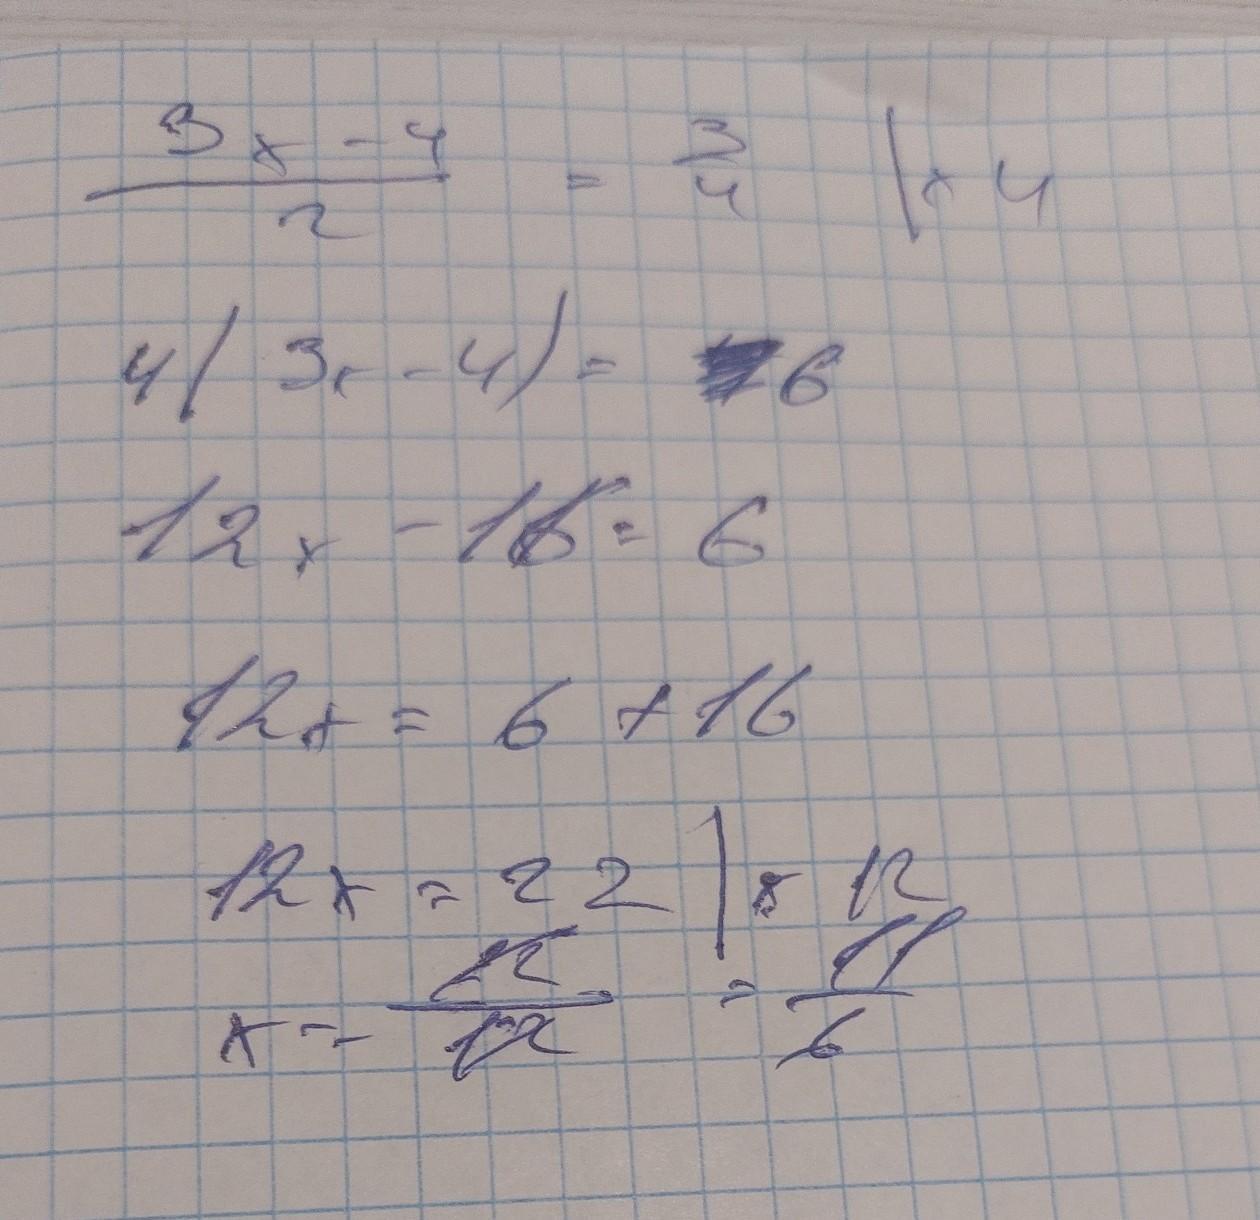 (3x - 4)/2 = 3/4 | × 4
4(3x - 4) = 6
12x - 16 = 6
12x = 6 + 16
12x = 22 | × 12
x = 22/12 = 11/6